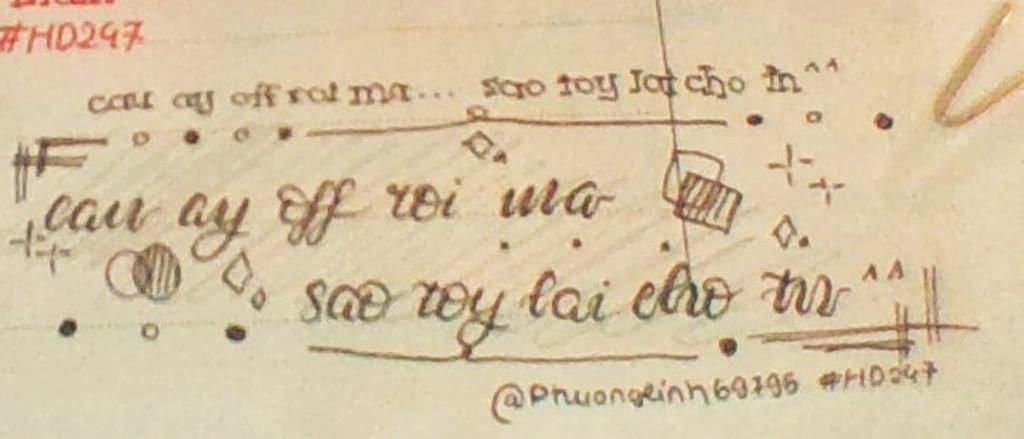 #HD247
cau ay off roi ma... sao roy lai cho tn^^
cau ay off roi ma
sao roy lai cho tn ^^
@Phuonglinh69795 #HD247